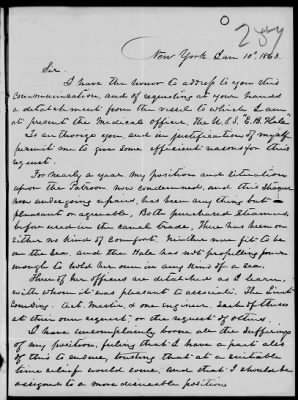 287
New York Jan 10th 1863.
Sir.
I have the honor to address to you this
communication, and of requesting at your hands
a detachment from the vessel to which I am
at present the Medical Officer, the U.S.S. "E. B. Hale"
To authorize you and in justification of myself
permit me to give some efficient reasons for this
request.
For nearly a year my position and situation
upon the Patroon now condemned, and this Steamer
now undergoing repairs, has been any thing but
pleasant or agreeable, Both purchased Steamers,
before used in the canal trade, There has been on
either no kind of comfort. Neither were fit to be
on the Sea, and the Hale has not propelling power
enough to hold her own in any kind of a sea.
Three of her officers are detached as I learn,
with whom it was pleasant to associate. The Lieut
Comding. Act. Master, & one engineer, each of them
at their own request, or the request of others.
I have uncomplainly borne all the sufferings
of my position, feeling that I have a part also
of this to endure, trusting that at a suitable
time relief would come, and that I should be
assigned to a more desireable position